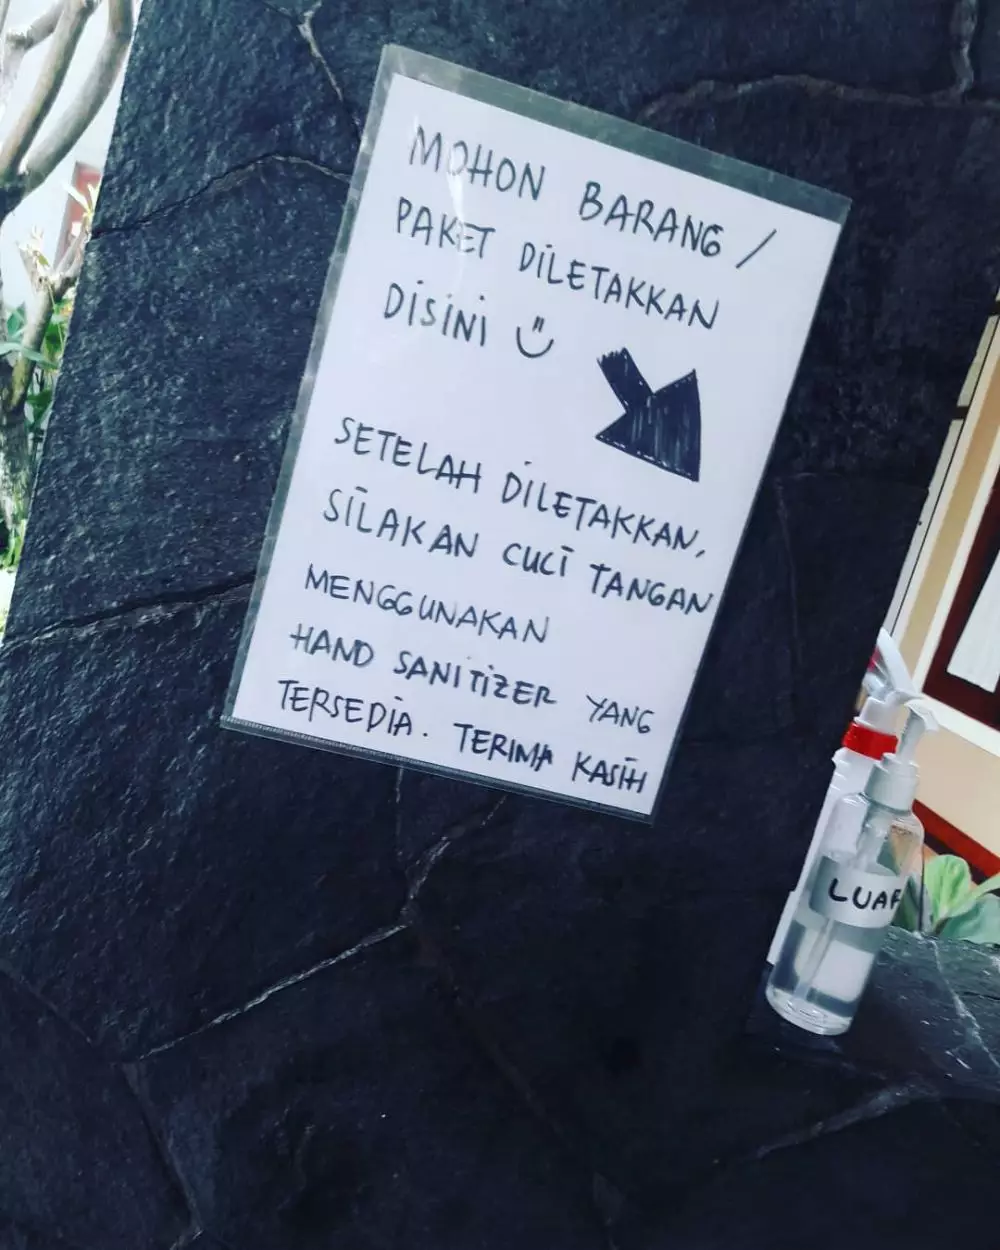 MOHON BARANG /
PAKET DILETAKKAN
DISINI
SETELAH DILETAKKAN,
SILAKAN CUCI TANGAN
MENGGUNAKAN
HAND SANITIZER YANG
TERSEDIA. TERIMA KASIH
LUAR